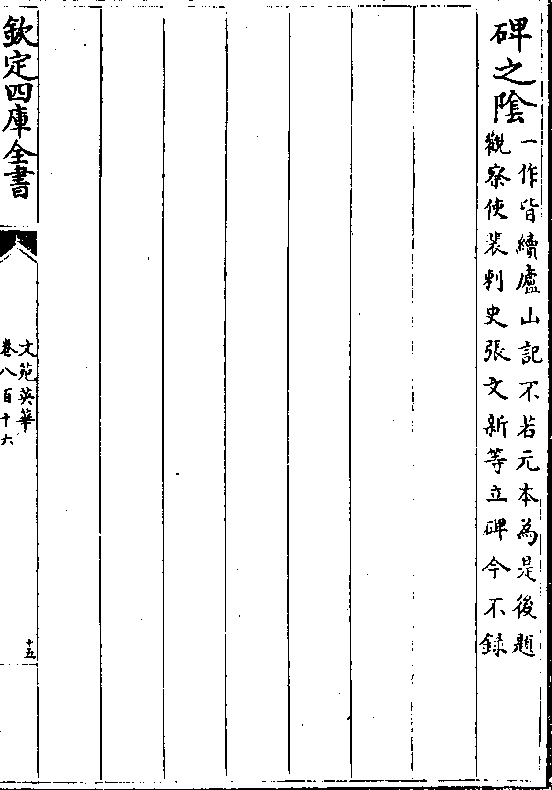 碑之陰
一作皆續廬山記不若元本為是後題
觀察使裴刺史張文新等立碑今不錄
欽定四庫全書
文苑英華
卷八百十六
十五